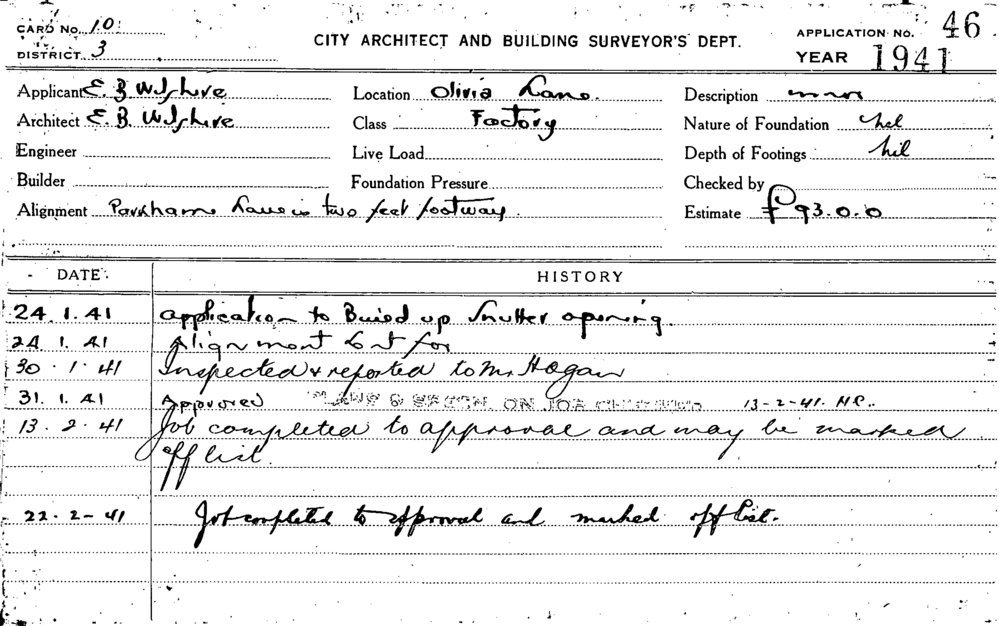 CARD No. 10
DISTRICT. 3
CITY ARCHITECT AND BUILDING SURVEYOR'S DEPT.
APPLICATION No. 46
YEAR 1941
Applicant E. B. Wilshire Location Olivia Lane. Description
Architect E. B. Wilshire Class Factory Nature of Foundation nil
Engineer Live Load Depth of Footings nil
Builder Foundation Pressure Checked by
Alignment Parkham Lane is two feet footway. Estimate £93.0.0
DATE. HISTORY
24.1.41 application to Build up shutter opening.
24.1.41 Alignment sent for
30.1.41 Inspected & reported to Mr Hogan
31.1.41 Approved PLANS & SPECN. ON JOB CHECKED 13-2-41. H.P..
13.2.41 Job completed to approval and may be marked
off list.
22.2-41 Job completed to approval and marked off list.